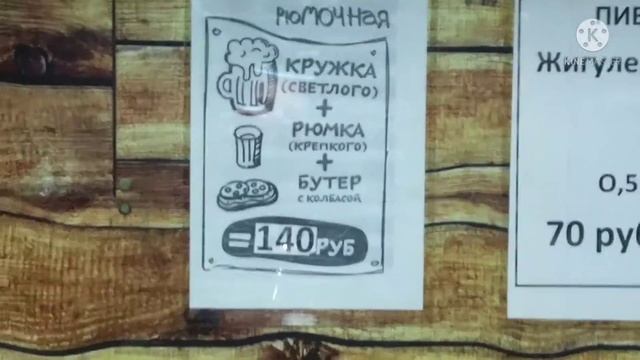 РЮМОЧНАЯ
КРУЖКА
(СВЕТЛОГО)
+
РЮМКА
(КРЕПКОГО)
+
БУТЕР
С КОЛБАСОЙ
=140РУБ
ПИВ
Жигуле
0,5
70 руб
K